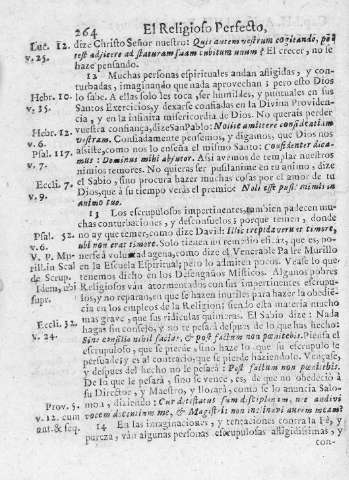 264 El Religioso Perfecto,
Luc. 12. dize Christo Señor nuestro: Quis autem vestrum cogitando, potest
v. 25. adjicere ad staturam suam cubitum unum? El crecer, no se
haze pensando.
12 Muchas personas espirituales andan afligidas, y con-
turbadas, imaginando que nada aprovechan; pero esto Dios
Hebr. 10. lo sabe. A ellas solo les toca, ser humildes, y puntuales en sus
v. 35. Santos Exercicios, y dexarse confiadas en la Divina Providen-
cia, y en la infinita misericordia de Dios. No querais perder
Hebr. 12. vuestra confiança, dize San Pablo: Nolite amittere confidentiam
v. 6. vestram. Confiadamente pensemos, y digamos, que Dios nos
Psal. 117. assiste, como nos lo enseña el mismo Santo: Confidenter dica-
v. 7. mus: Dominus mihi adjutor. Assi avemos de templar nuestros
nimios temores. No quieras ser pusilanime en tu animo, dize
Eccli. 7. el Sabio, sino procura hazer muchas cosas por el amor de tu
v. 9. Dios, que à su tiempo verás el premio: Noli esse pusillanimis in
animo tuo.
13 Los escrupulosos impertinentes, tambien padecen mu-
chas conturbaciones, y desconsuelos; porque temen, donde
Psal. 52. no ay que temer, como dize David: Illic trepidaverunt timore,
v. 6. ubi non erat timor. Solo tienen un remedio eficaz, que es, po-
V. P. Mu- nerse à voluntad agena, como dize el Venerable Padre Murillo
rill. in Scal en la Escuela Espiritual; pero lo admiten pocos. Vease lo que
de Scrup. tenemos dicho en los Desengaños Misticos. Algunos pobres
Idem, ubi Religiosos ván atormentados con sus impertinentes escrupu-
supr. los, y no reparan, en que se hazen inutiles para hazer la obedien-
cia en los empleos de la Religion; siendo esta materia mucho
mas grave, que las ridiculas quimeras. El Sabio dize: Nada
Eccli. 32. hagas sin consejo, y no te pesará despues de lo que has hecho:
v. 24. Sine consilio nihil facias, & post factum non pœnitebis. Piensa el
escrupuloso, que se pierde, sino haze lo que su escrupulo le
persuade; y es al contrario, que se pierde haziendolo. Vençase,
y despues del hecho no le pesará: Post factum non pœnitebis.
De lo que le pesará, sino se vence, es, de que no obedeciò à
su Director, y Maestro, y llorará, como se lo anuncia Salo-
Prov. 5. mon, diziendo: Cur detestatus sum disciplinam, nec audivi
v. 12. cum vocem docentium me, & Magistris non inclinavi aurem meam?
ant. & seq. 14 En las imaginaciones, y tentaciones contra la Fé, y
pureza, ván algunas personas escrupulosas afligidissimas, y
con-